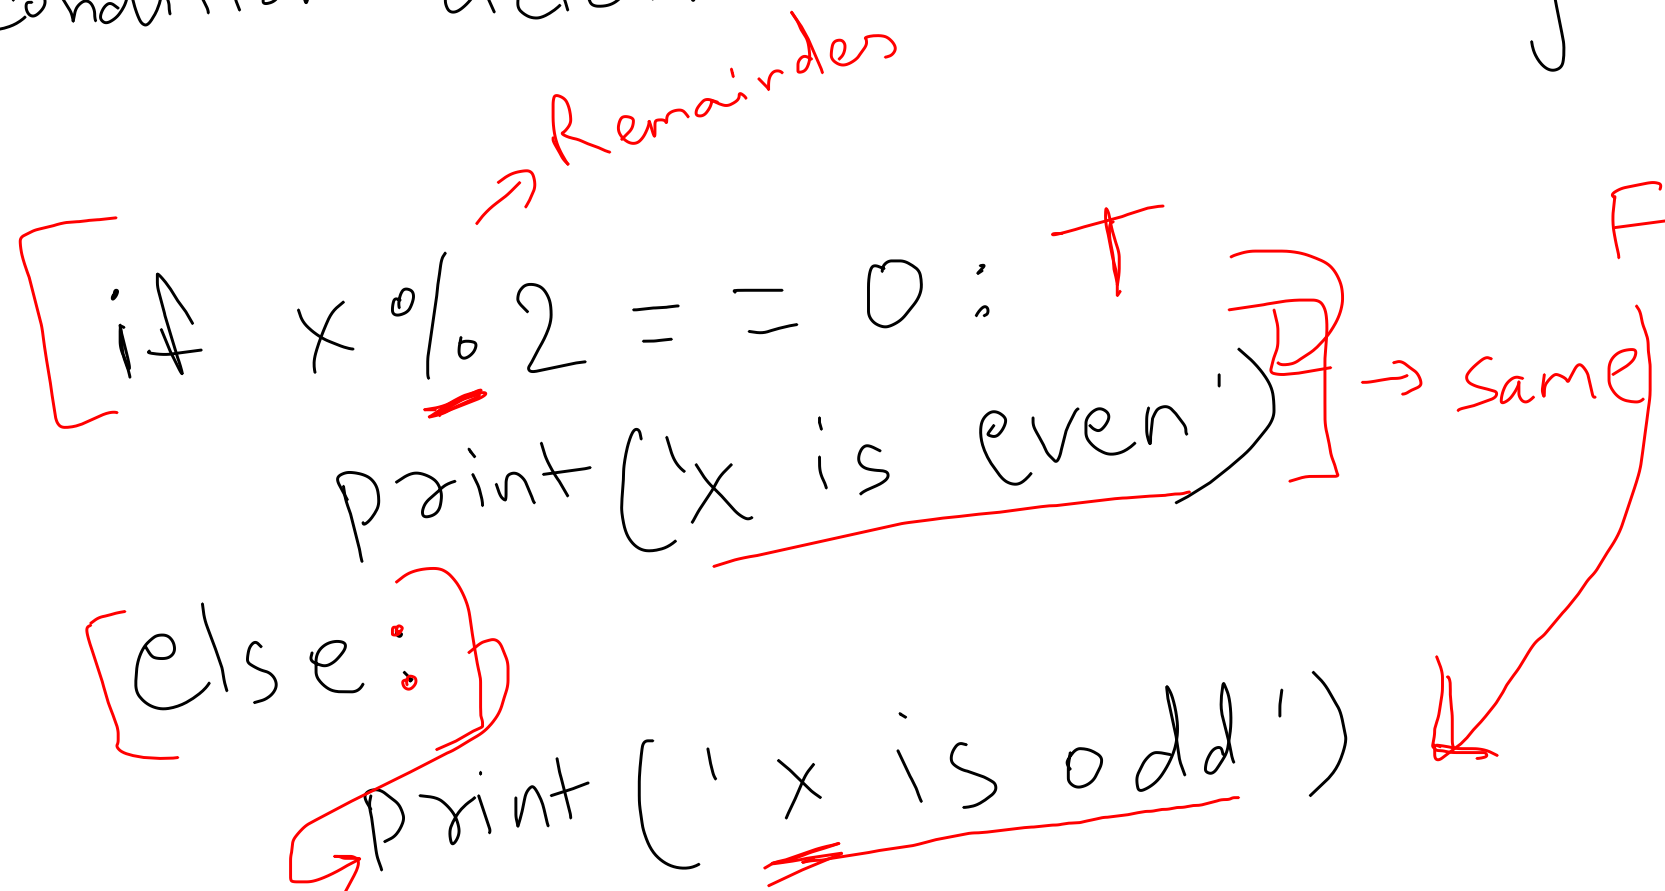 Remainder
if x % 2 == 0: T F
print('x is even') → same
else:
print('x is odd')